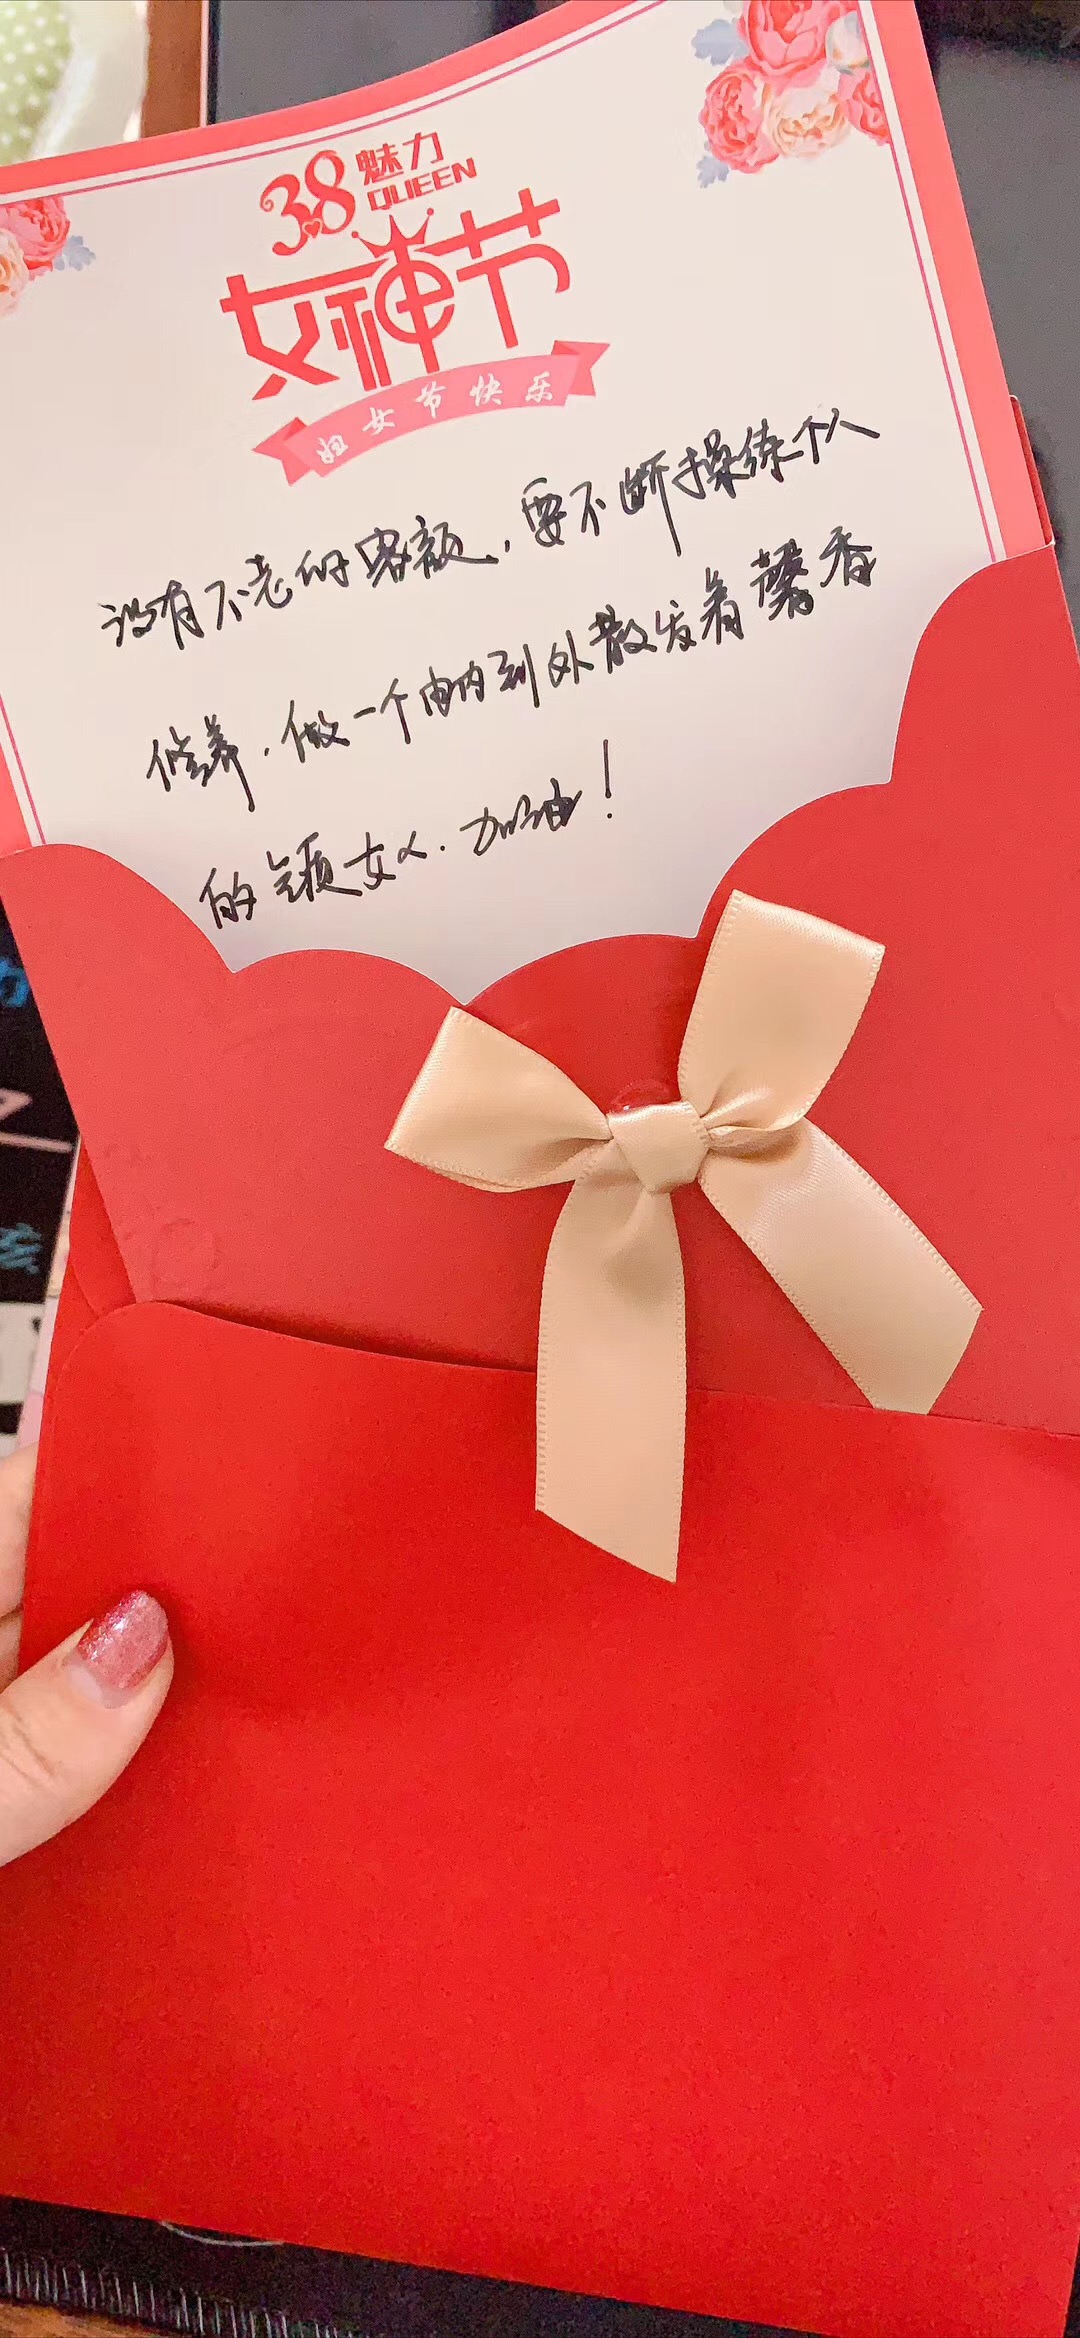 38 魅力
QUEEN
女神节
妇女节快乐
没有不老的容颜，要不断操练个人
修养，做一个由内到外散发着馨香
的气质女人.加油！